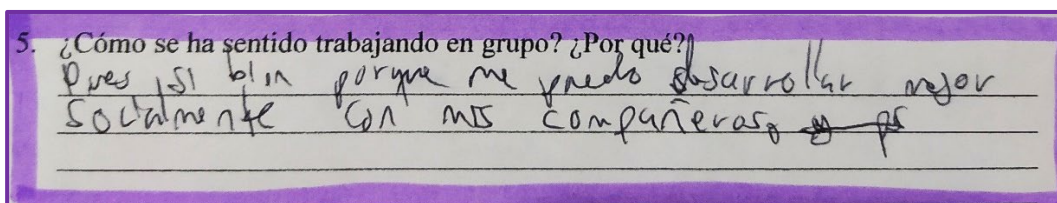 5. ¿Cómo se ha sentido trabajando en grupo? ¿Por qué?
Pues, si bien porque me puedo desarrollar mejor
Socialmente con mis compañeras,